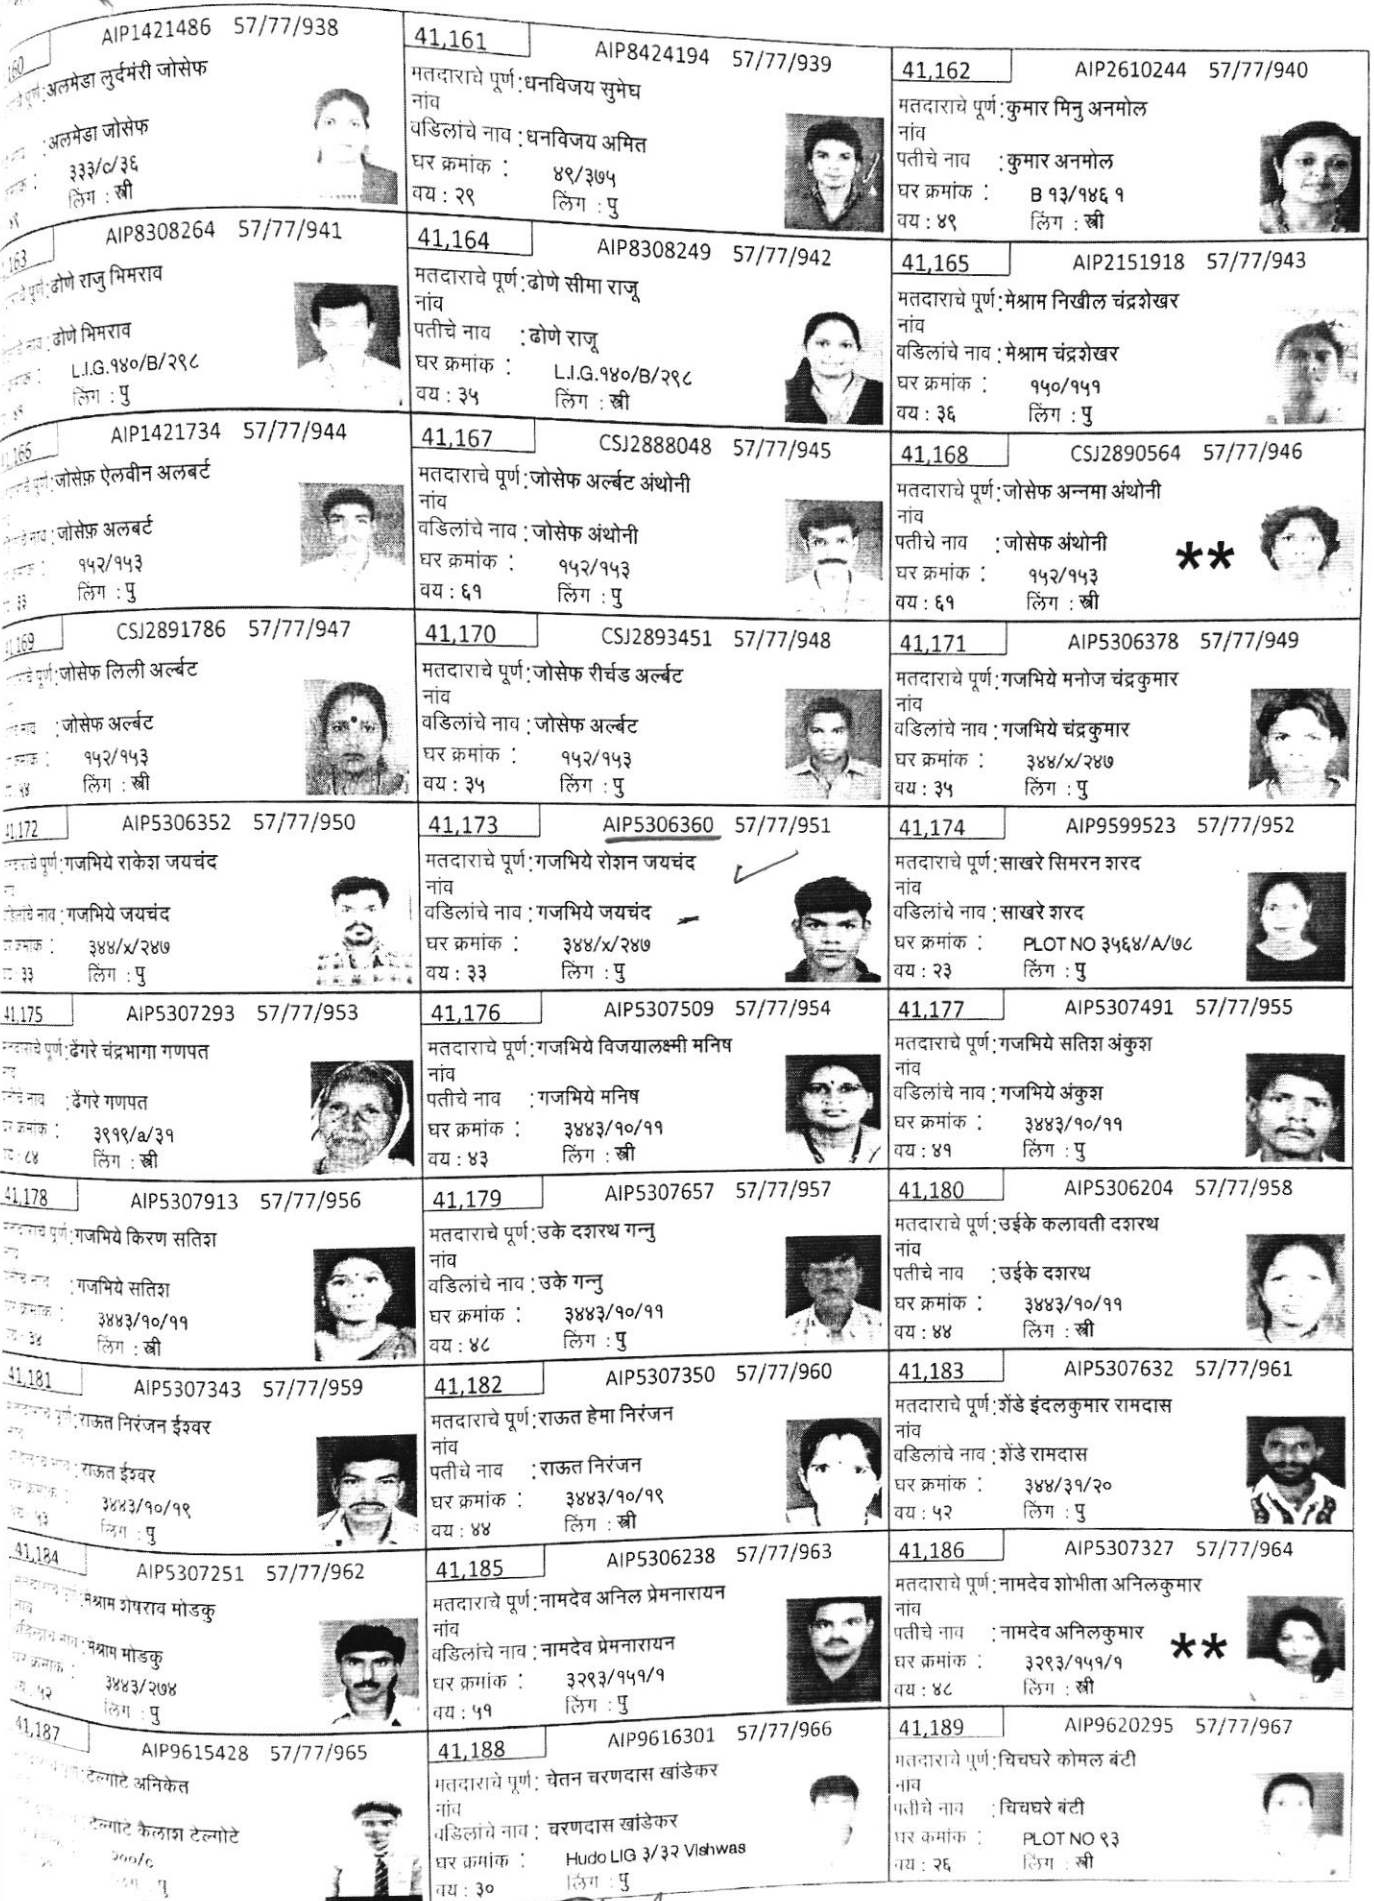 AIP1421486 57/77/938
अलमेडा लुर्दमंरी जोसेफ
अलमेडा जोसेफ
३३३/c/३६
लिंग : स्त्री
41,161 AIP8424194 57/77/939
मतदाराचे पूर्ण : धनविजय सुमेघ
नांव
वडिलांचे नाव : धनविजय अमित
घर क्रमांक : ४९/३७५
वय : २९ लिंग : पु
41,162 AIP2610244 57/77/940
मतदाराचे पूर्ण : कुमार मिनु अनमोल
नांव
पतीचे नाव : कुमार अनमोल
घर क्रमांक : B १३/१४६ १
वय : ४९ लिंग : स्त्री
163 AIP8308264 57/77/941
ढोणे राजु भिमराव
ढोणे भिमराव
L.I.G.१४०/B/२९८
लिंग : पु
41,164 AIP8308249 57/77/942
मतदाराचे पूर्ण : ढोणे सीमा राजू
नांव
पतीचे नाव : ढोणे राजू
घर क्रमांक : L.I.G.१४०/B/२९८
वय : ३५ लिंग : स्त्री
41,165 AIP2151918 57/77/943
मतदाराचे पूर्ण : मेश्राम निखील चंद्रशेखर
नांव
वडिलांचे नाव : मेश्राम चंद्रशेखर
घर क्रमांक : १५०/१५१
वय : ३६ लिंग : पु
166 AIP1421734 57/77/944
जोसेफ़ ऐलवीन अलबर्ट
जोसेफ़ अलबर्ट
१५२/१५३
३३ लिंग : पु
41,167 CSJ2888048 57/77/945
मतदाराचे पूर्ण : जोसेफ अर्ल्बट अंथोनी
नांव
वडिलांचे नाव : जोसेफ अंथोनी
घर क्रमांक : १५२/१५३
वय : ६१ लिंग : पु
41,168 CSJ2890564 57/77/946
मतदाराचे पूर्ण : जोसेफ अन्नमा अंथोनी
नांव
पतीचे नाव : जोसेफ अंथोनी **
घर क्रमांक : १५२/१५३
वय : ६१ लिंग : स्त्री
41,169 CSJ2891786 57/77/947
जोसेफ लिली अर्ल्बट
जोसेफ अर्ल्बट
१५२/१५३
लिंग : स्त्री
41,170 CSJ2893451 57/77/948
मतदाराचे पूर्ण : जोसेफ रीर्चड अर्ल्बट
नांव
वडिलांचे नाव : जोसेफ अर्ल्बट
घर क्रमांक : १५२/१५३
वय : ३५ लिंग : पु
41,171 AIP5306378 57/77/949
मतदाराचे पूर्ण : गजभिये मनोज चंद्रकुमार
नांव
वडिलांचे नाव : गजभिये चंद्रकुमार
घर क्रमांक : ३४४/x/२४७
वय : ३५ लिंग : पु
41,172 AIP5306352 57/77/950
गजभिये राकेश जयचंद
गजभिये जयचंद
३४४/x/२४७
३३ लिंग : पु
41,173 AIP5306360 57/77/951
मतदाराचे पूर्ण : गजभिये रोशन जयचंद
नांव
वडिलांचे नाव : गजभिये जयचंद
घर क्रमांक : ३४४/x/२४७
वय : ३३ लिंग : पु
41,174 AIP9599523 57/77/952
मतदाराचे पूर्ण : साखरे सिमरन शरद
नांव
वडिलांचे नाव : साखरे शरद
घर क्रमांक : PLOT NO ३५६४/A/७८
वय : २३ लिंग : पु
41,175 AIP5307293 57/77/953
ढेंगरे चंद्रभागा गणपत
ढेंगरे गणपत
३९१९/a/३१
८४ लिंग : स्त्री
41,176 AIP5307509 57/77/954
मतदाराचे पूर्ण : गजभिये विजयालक्ष्मी मनिष
नांव
पतीचे नाव : गजभिये मनिष
घर क्रमांक : ३४४३/१०/११
वय : ४३ लिंग : स्त्री
41,177 AIP5307491 57/77/955
मतदाराचे पूर्ण : गजभिये सतिश अंकुश
नांव
वडिलांचे नाव : गजभिये अंकुश
घर क्रमांक : ३४४३/१०/११
वय : ४१ लिंग : पु
41,178 AIP5307913 57/77/956
गजभिये किरण सतिश
गजभिये सतिश
३४४३/१०/११
३४ लिंग : स्त्री
41,179 AIP5307657 57/77/957
मतदाराचे पूर्ण : उके दशरथ गन्नु
नांव
वडिलांचे नाव : उके गन्नु
घर क्रमांक : ३४४३/१०/११
वय : ४८ लिंग : पु
41,180 AIP5306204 57/77/958
मतदाराचे पूर्ण : उईके कलावती दशरथ
नांव
पतीचे नाव : उईके दशरथ
घर क्रमांक : ३४४३/१०/११
वय : ४४ लिंग : स्त्री
41,181 AIP5307343 57/77/959
राऊत निरंजन ईश्वर
राऊत ईश्वर
३४४३/१०/१९
५३ लिंग : पु
41,182 AIP5307350 57/77/960
मतदाराचे पूर्ण : राऊत हेमा निरंजन
नांव
पतीचे नाव : राऊत निरंजन
घर क्रमांक : ३४४३/१०/१९
वय : ४४ लिंग : स्त्री
41,183 AIP5307632 57/77/961
मतदाराचे पूर्ण : शेंडे इंदलकुमार रामदास
नांव
वडिलांचे नाव : शेंडे रामदास
घर क्रमांक : ३४४/३१/२०
वय : ५२ लिंग : पु
41,184 AIP5307251 57/77/962
मेश्राम शेषराव मोडकु
मेश्राम मोडकु
३४४३/२७४
५२ लिंग : पु
41,185 AIP5306238 57/77/963
मतदाराचे पूर्ण : नामदेव अनिल प्रेमनारायन
नांव
वडिलांचे नाव : नामदेव प्रेमनारायन
घर क्रमांक : ३२९३/१५१/१
वय : ५१ लिंग : पु
41,186 AIP5307327 57/77/964
मतदाराचे पूर्ण : नामदेव शोभीता अनिलकुमार
नांव
पतीचे नाव : नामदेव अनिलकुमार **
घर क्रमांक : ३२९३/१५१/१
वय : ४८ लिंग : स्त्री
41,187 AIP9615428 57/77/965
टेल्गोटे अनिकेत
टेल्गोटे कैलाश टेल्गोटे
२००/c
41,188 AIP9616301 57/77/966
मतदाराचे पूर्ण : चेतन चरणदास खांडेकर
नांव
वडिलांचे नाव : चरणदास खांडेकर
घर क्रमांक : Hudo LIG ३/३२ Vishwas
वय : ३० लिंग : पु
41,189 AIP9620295 57/77/967
मतदाराचे पूर्ण : चिचघरे कोमल बंटी
नांव
पतीचे नाव : चिचघरे बंटी
घर क्रमांक : PLOT NO ९३
वय : २६ लिंग : स्त्री